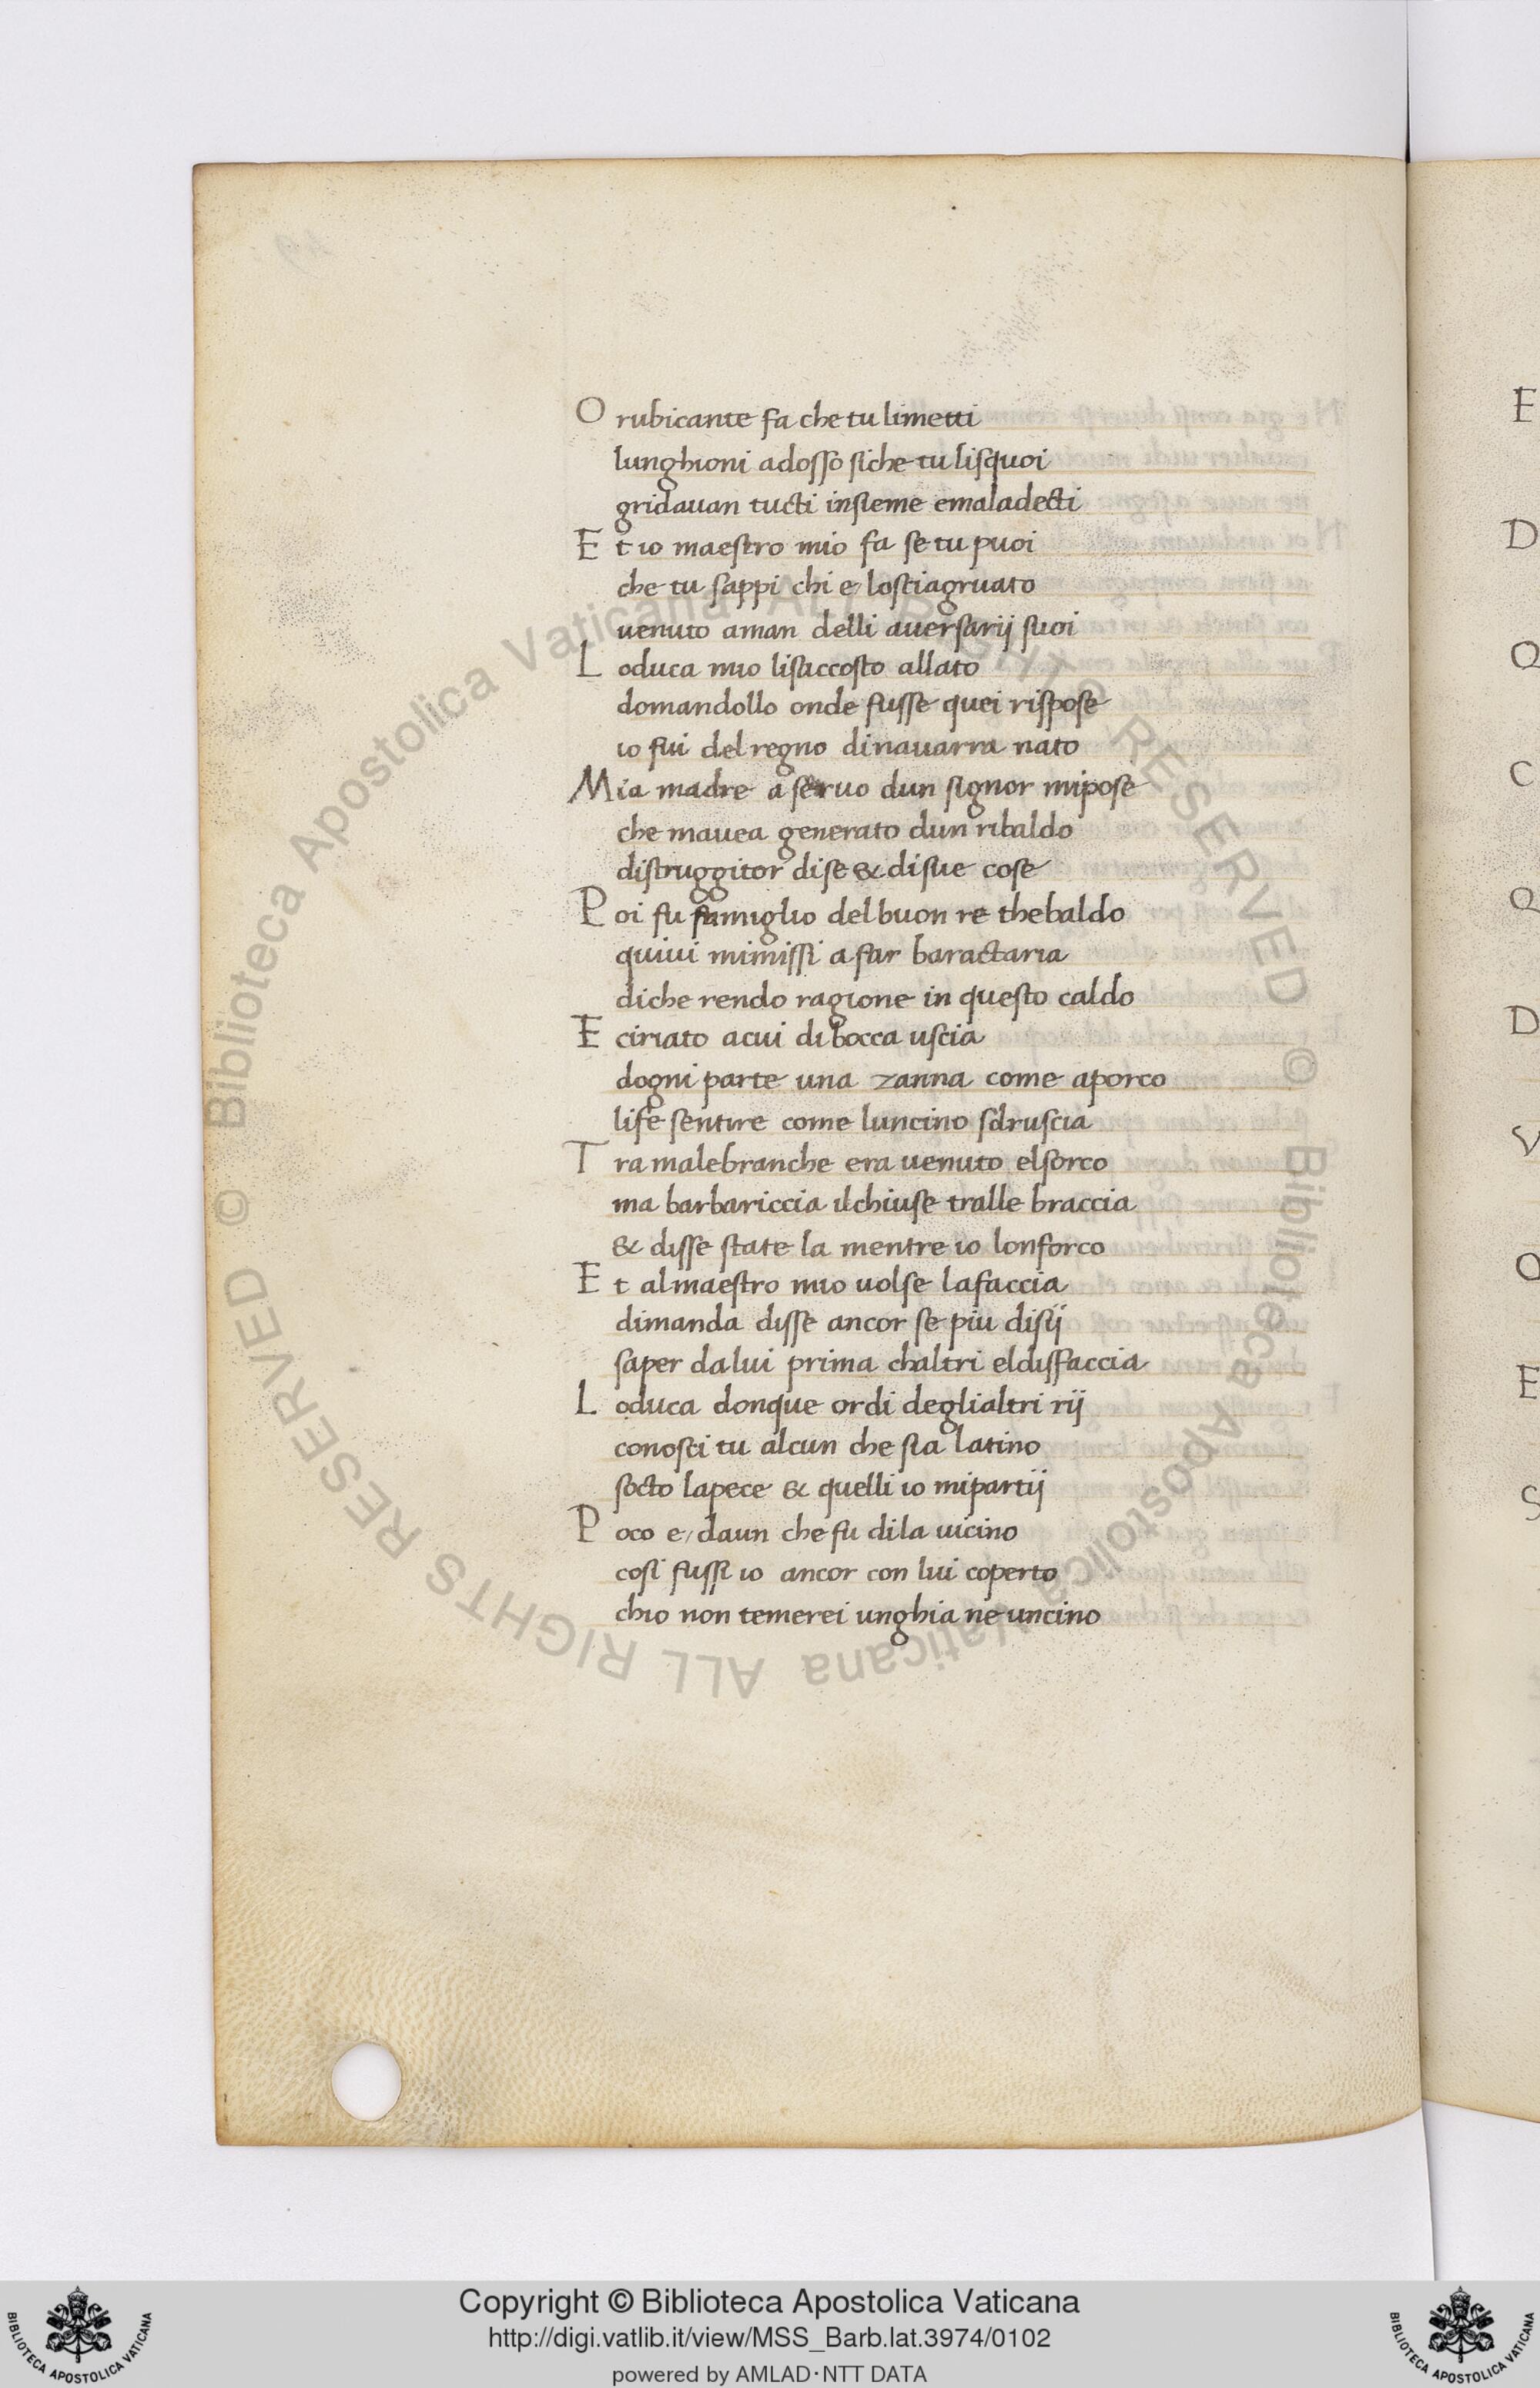 O rubicante fa che tu limetti
lunghioni adosso siche tu lisquoi
gridauan tucti insieme emaladecti
E t io maestro mio fa se tu puoi
che tu sappi chi e losciagruato
uenuto aman delli auersarij suoi
L oduca mio lisaccosto allato
domandollo onde fusse quei rispose
io fui del regno dinauarra nato
Mia madre a seruo dun signor mipose
che mauea generato dun ribaldo
distruggitor dise & disue cose
P oi fu famiglio del buon re thebaldo
quiui mimissi a far baractaria
diche rendo ragione in questo caldo
E ciriato acui di bocca uscia
dogni parte una zanna come aporco
life sentire come luncino sdruscia
T ra malebranche era uenuto elsorco
ma barbariccia ilchiuse tralle braccia
& disse state la mentre io lonforco
E t al maestro mio uolse lafaccia
dimanda disse ancor se piu disij
saper dalui prima chaltri eldisfaccia
L oduca donque or di deglialtri rij
conosci tu alcun che sia latino
socto lapece & quelli io mipartij
P oco e daun che fu dila uicino
cosi fussi io ancor con lui coperto
chio non temerei unghia ne uncino
E
D
Q
C
Q
D
V
O
E
S
© Biblioteca Apostolica Vaticana ALL RIGHTS RESERVED © Biblioteca Apostolica Vaticana ALL RIGHTS RESERVED
Copyright © Biblioteca Apostolica Vaticana
http://digi.vatlib.it/view/MSS_Barb.lat.3974/0102
powered by AMLAD·NTT DATA
BIBLIOTECA APOSTOLICA VATICANA
BIBLIOTECA APOSTOLICA VATICANA